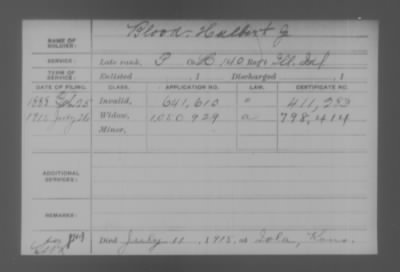 NAME OF SOLDIER: Blood, Halbert G
SERVICE: Late rank, P Co. K, 140 Reg't Ill. Inf
TERM OF SERVICE: Enlisted , 1 Discharged , 1
DATE OF FILING. CLASS. APPLICATION NO. LAW. CERTIFICATE NO.
1888 Feb 25 Invalid, 641,610 " 411,293
1915 July 26 Widow, 1050929 a 798,414
Minor,
ADDITIONAL SERVICES:
REMARKS:
Died July 11, 1915, at Iola, Kans.